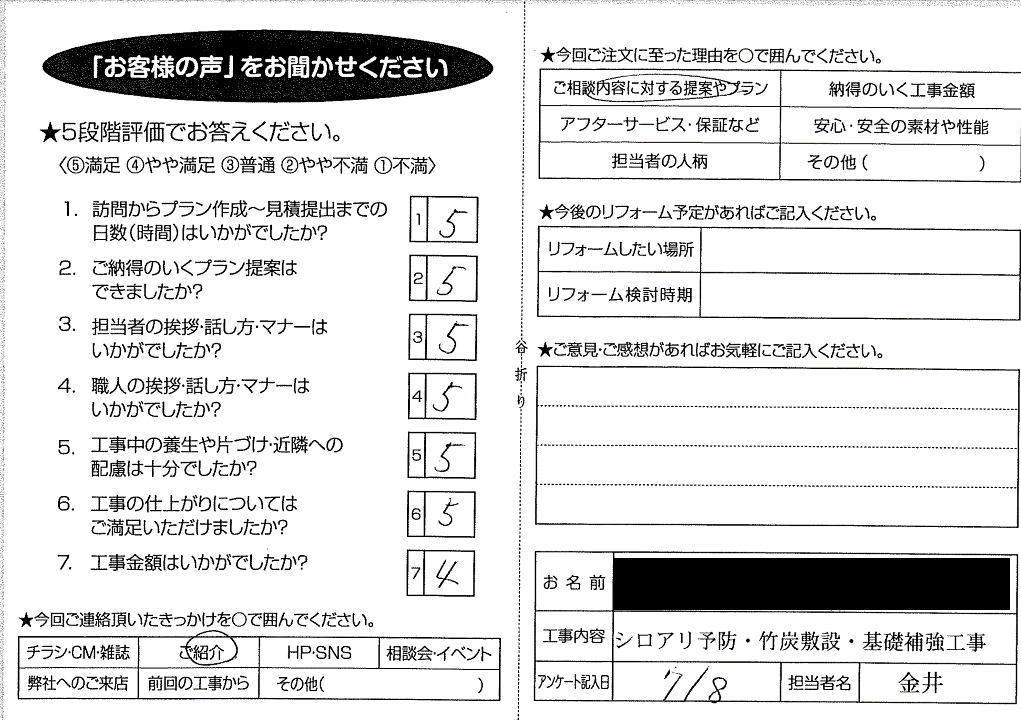 「お客様の声」をお聞かせください
★5段階評価でお答えください。
〈⑤満足 ④やや満足 ③普通 ②やや不満 ①不満〉
1. 訪問からプラン作成～見積提出までの
日数(時間)はいかがでしたか?
1 5
2. ご納得のいくプラン提案は
できましたか?
2 5
3. 担当者の挨拶・話し方・マナーは
いかがでしたか?
3 5
4. 職人の挨拶・話し方・マナーは
いかがでしたか?
4 5
5. 工事中の養生や片づけ・近隣への
配慮は十分でしたか?
5 5
6. 工事の仕上がりについては
ご満足いただけましたか?
6 5
7. 工事金額はいかがでしたか?
7 4
★今回ご連絡頂いたきっかけを○で囲んでください。
チラシ・CM・雑誌 ご紹介 HP・SNS 相談会・イベント
弊社へのご来店 前回の工事から その他( )
谷折り
★今回ご注文に至った理由を○で囲んでください。
ご相談内容に対する提案やプラン 納得のいく工事金額
アフターサービス・保証など 安心・安全の素材や性能
担当者の人柄 その他( )
★今後のリフォーム予定があればご記入ください。
リフォームしたい場所
リフォーム検討時期
★ご意見・ご感想があればお気軽にご記入ください。
お名前
工事内容 シロアリ予防・竹炭敷設・基礎補強工事
アンケート記入日 7/8 担当者名 金井